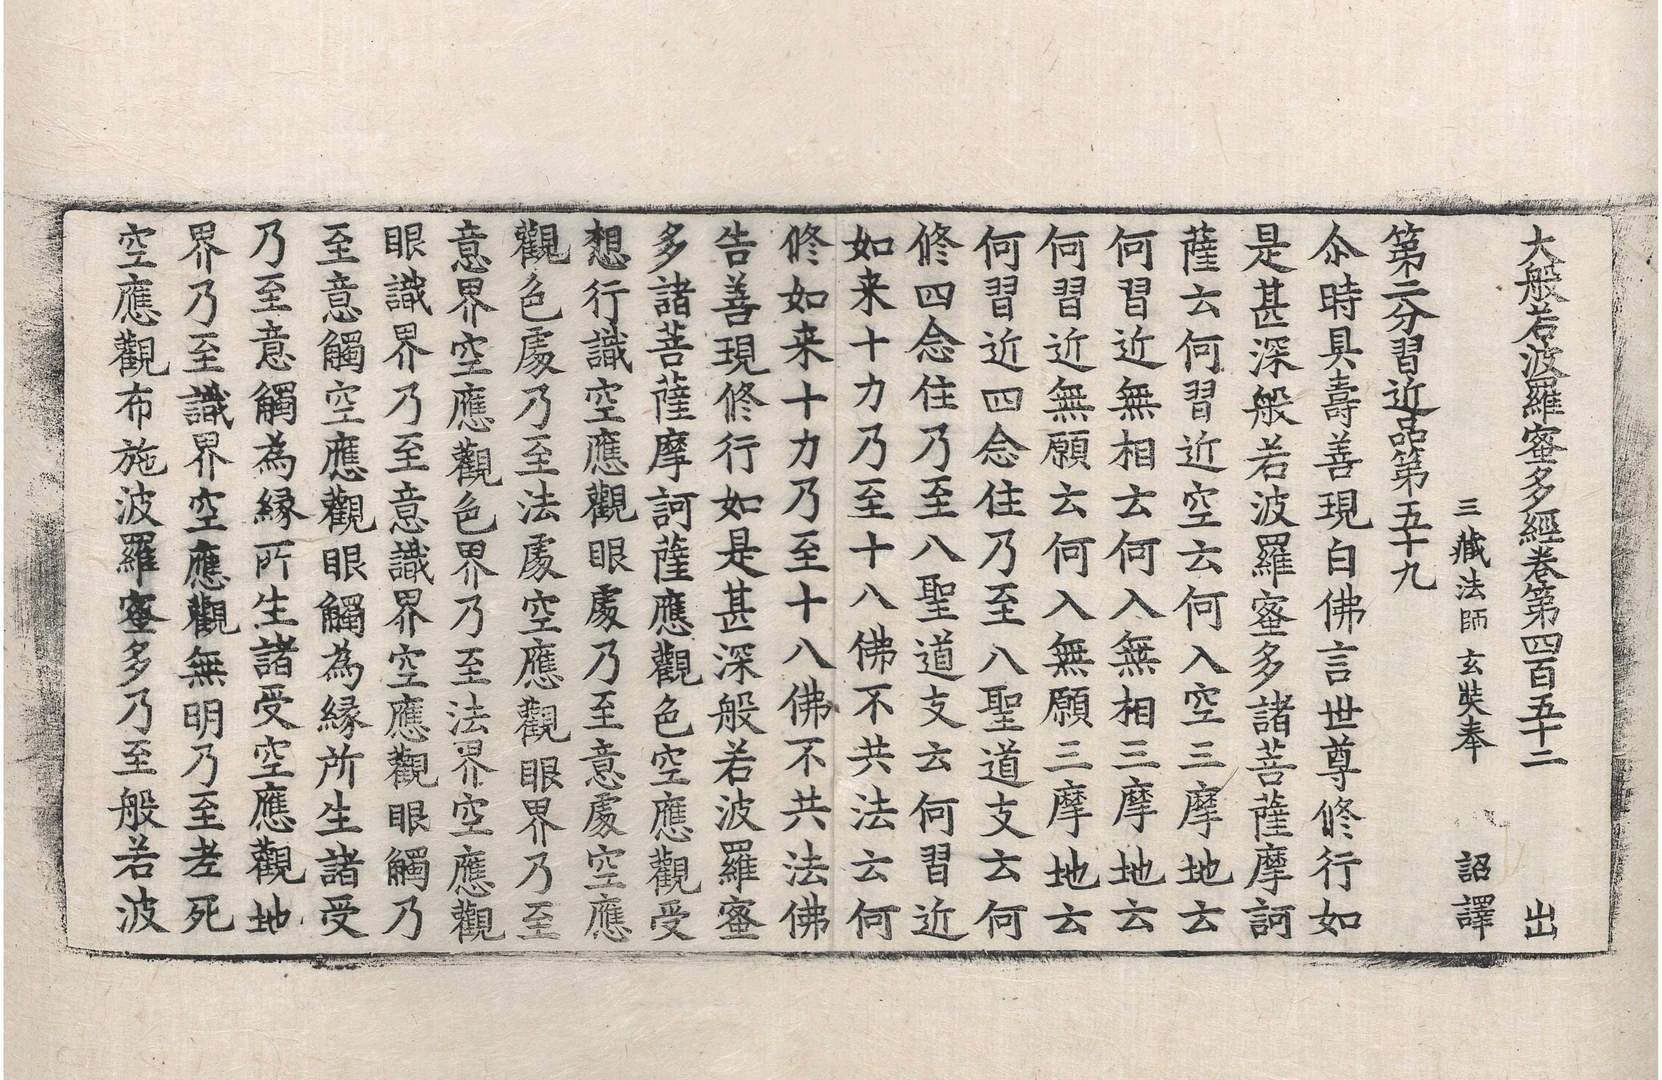 大般若波羅蜜多經卷第四百五十二　出
三藏法師玄奘奉　詔譯
第二分習近品第五十九
尒時具壽善現白佛言世尊修行如
是甚深般若波羅蜜多諸菩薩摩訶
薩云何習近空云何入空三摩地云
何習近無相云何入無相三摩地云
何習近無願云何入無願三摩地云
何習近四念住乃至八聖道支云何
修四念住乃至八聖道支云何習近
如来十力乃至十八佛不共法云何
修如来十力乃至十八佛不共法佛
告善現修行如是甚深般若波羅蜜
多諸菩薩摩訶薩應觀色空應觀受
想行識空應觀眼處乃至意處空應
觀色處乃至法處空應觀眼界乃至
意界空應觀色界乃至法界空應觀
眼識界乃至意識界空應觀眼觸乃
至意觸空應觀眼觸為緣所生諸受
乃至意觸為緣所生諸受空應觀地
界乃至識界空應觀無明乃至老死
空應觀布施波羅蜜多乃至般若波